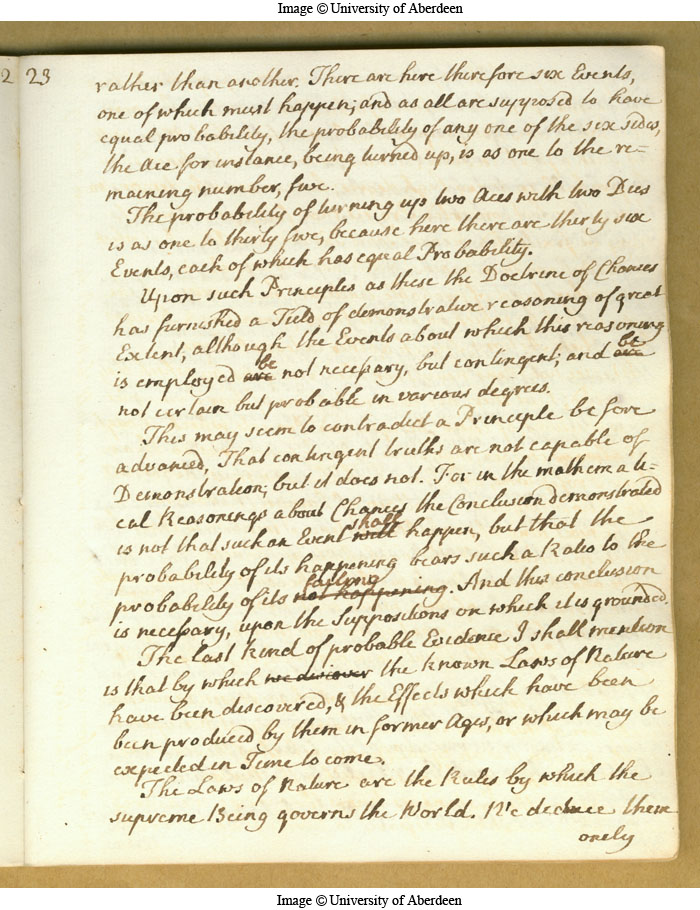 Image © University of Aberdeen
2 23
rather than another. There are here therefore six Events,
one of which must happen; and as all are supposed to have
equal probability, the probability of any one of the six sides,
the Ace for instance, being turned up, is as one to the re-
maining number, five.
The probability of turning up two Aces with two Dies
is as one to thirty five, because here there are thirty six
Events, each of which has equal Probability.
Upon such Principles as these the Doctrine of Chances
has furnished a Field of demonstrative reasoning of great
Extent, although the Events about which this reasoning
be be
is employed are not necessary, but contingent; and are
not certain but probable in various degrees.
This may seem to contradict a Principle before
advanced, That contingent truths are not capable of
Demonstration; but it does not. For in the mathemati-
cal Reasonings about Chances the Conclusion demonstrated
shall
is not that such an Event will happen, but that the
probability of its happening bears such a Ratio to the
failing
probability of its not happening. And this conclusion
is necessary, upon the Suppositions on which it is grounded.
The last kind of probable Evidence I shall mention
is that by which we discover the known Laws of Nature
have been discovered, & the Effects which have been
been produced by them in former Ages, or which may be
expected in Time to come.
The Laws of Nature are the Rules by which the
supreme Being governs the World. We deduce them
onely
Image © University of Aberdeen